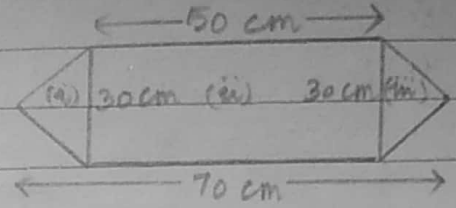 50 cm
(i) 30cm (ii) 30cm (iii)
70 cm